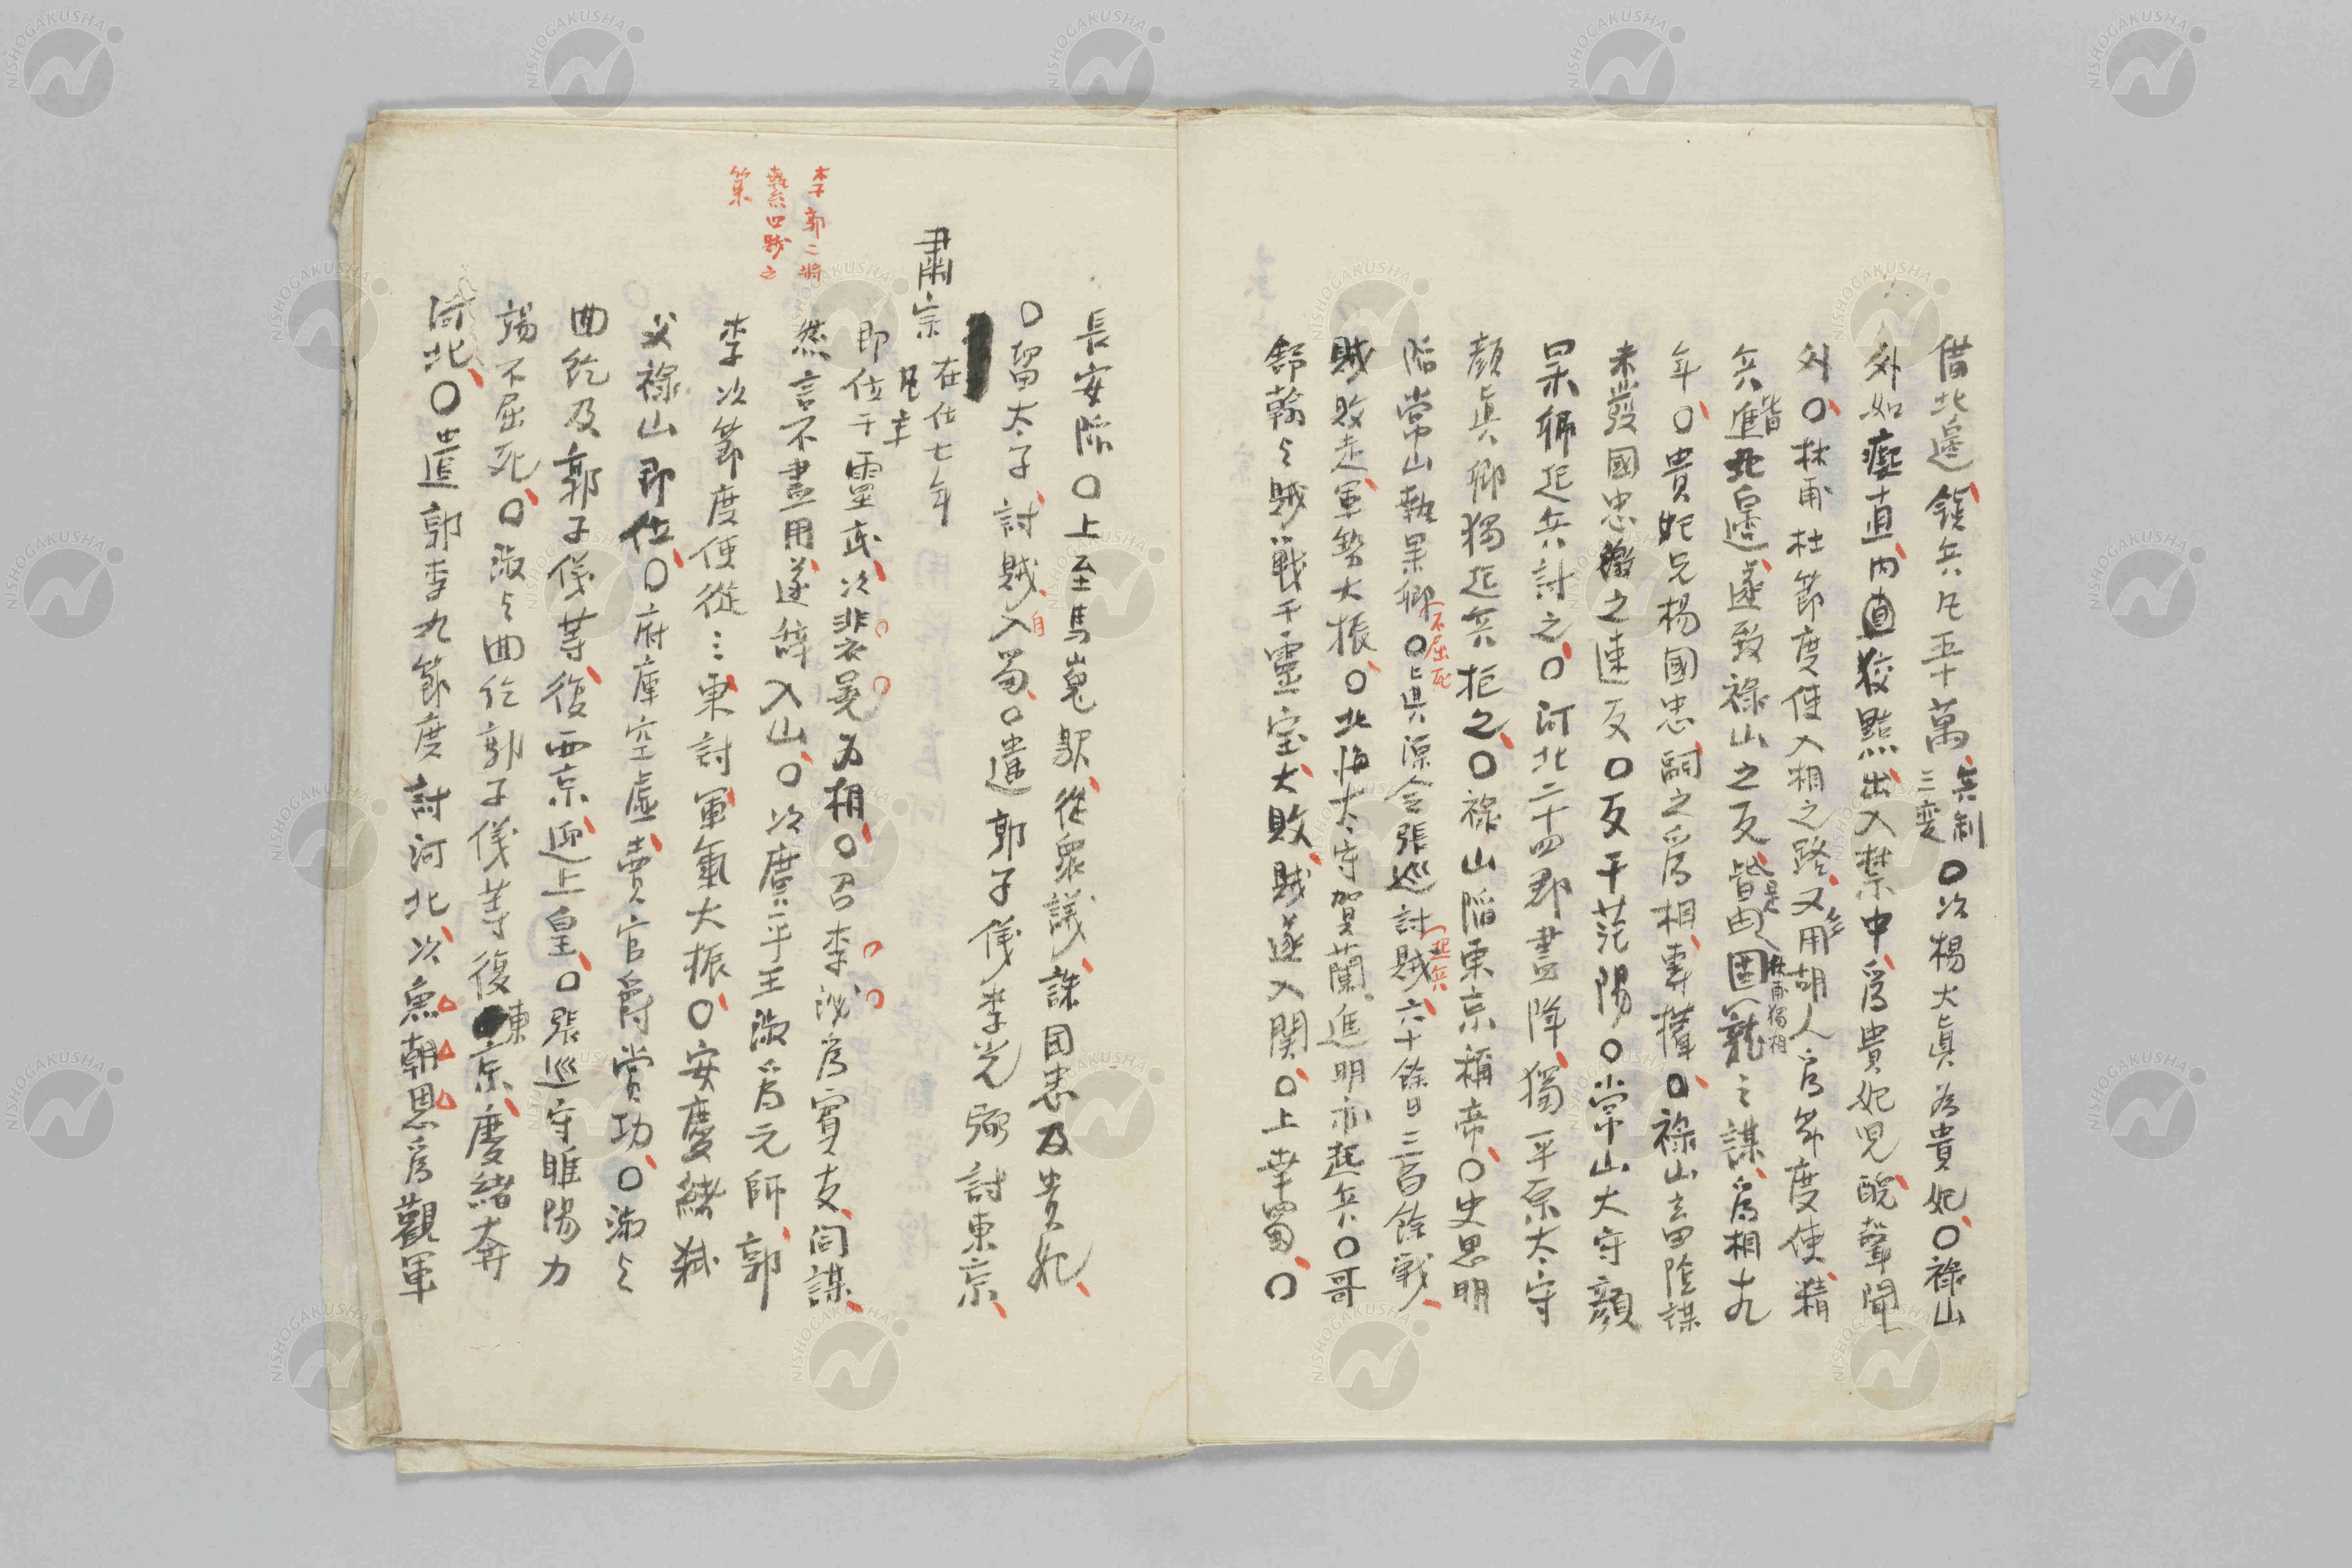 備北邊鎮兵凡五十萬兵制三変〇次楊大眞为貴妃〇祿山
外如癡直内狡黠出入禁中爲貴妃児醜聲聞
外〇林甫杜節度使入相之路又多用胡人爲節度使精
兵皆進北邊遂致祿山之反皆是由固寵之謀林甫獨相爲相十九
年〇貴妃兄楊國忠嗣之爲相専權〇祿山玄畜陰謀
未發國忠激之速反〇反于范陽〇常山大守顔
杲卿起兵討之〇河北二十四郡盡降獨平原太守
顔眞卿獨起兵拒之〇祿山陷東京稱帝〇史思明
陷常山執杲卿不屈死〇眞源令張巡起兵討賊六十餘日三百餘戦
賊敗走軍勢大振〇北海太守賀蘭進明亦起兵〇哥
舒翰与賊戰于靈宝大敗賊遂入関〇上幸蜀〇
長安陷〇上至馬嵬駅從衆議誅国忠及貴妃
〇留太子討賊自入蜀〇遣郭子儀李光弼討東京
肅宗在位七年
即位于靈武次裴冕为相〇召李泌爲賓友问謀
然言不盡用遂辞入山〇次廣平王淑爲元師郭
李次節度使從之東討軍氣大振〇安慶緒弑
父祿山即位〇府庫空虛賣官爵賞功〇淑与
回紇及郭子儀等復西京迎上皇〇張巡守睢陽力
竭不屈死〇淑与回紇郭子儀等復東京慶緒奔
河北〇遣郭李九節度討河北次魚朝恩爲觀軍
李郭二將
繫四賊之
策
NISHOGAKUSHA